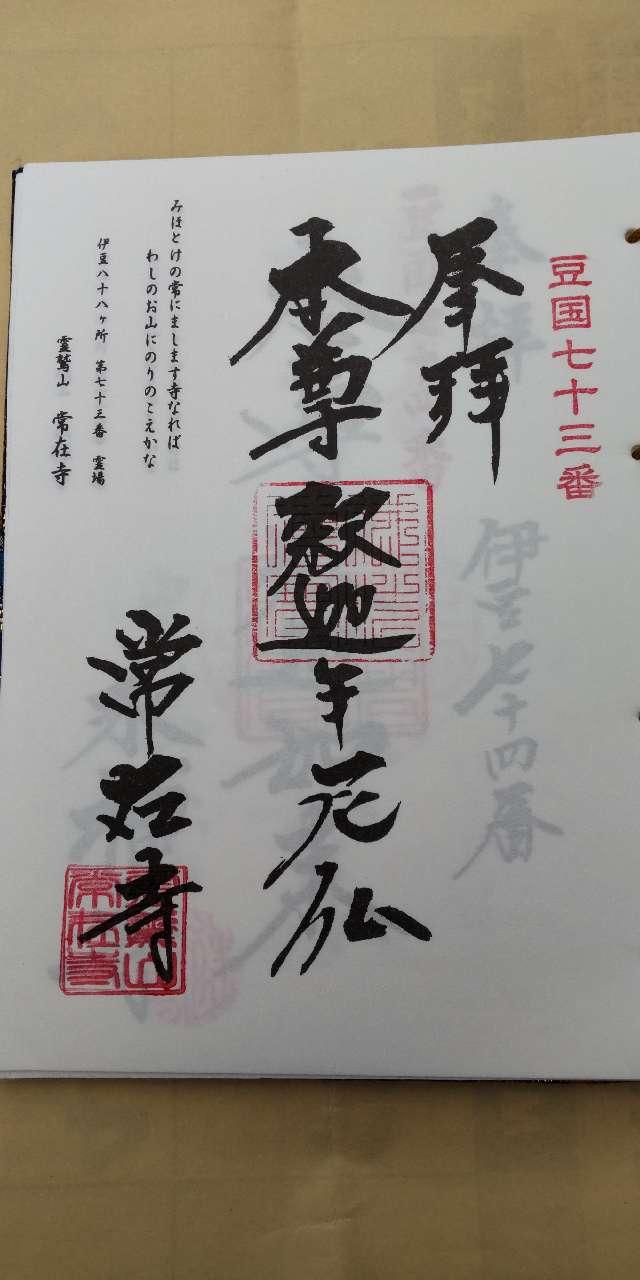 豆国七十三番
奉拝
本尊 釈迦牟尼仏
常在寺
みほとけの常にまします寺なれば
わしのお山にのりのこえかな
伊豆八十八ヶ所 第七十三番 霊場
霊鷲山 常在寺